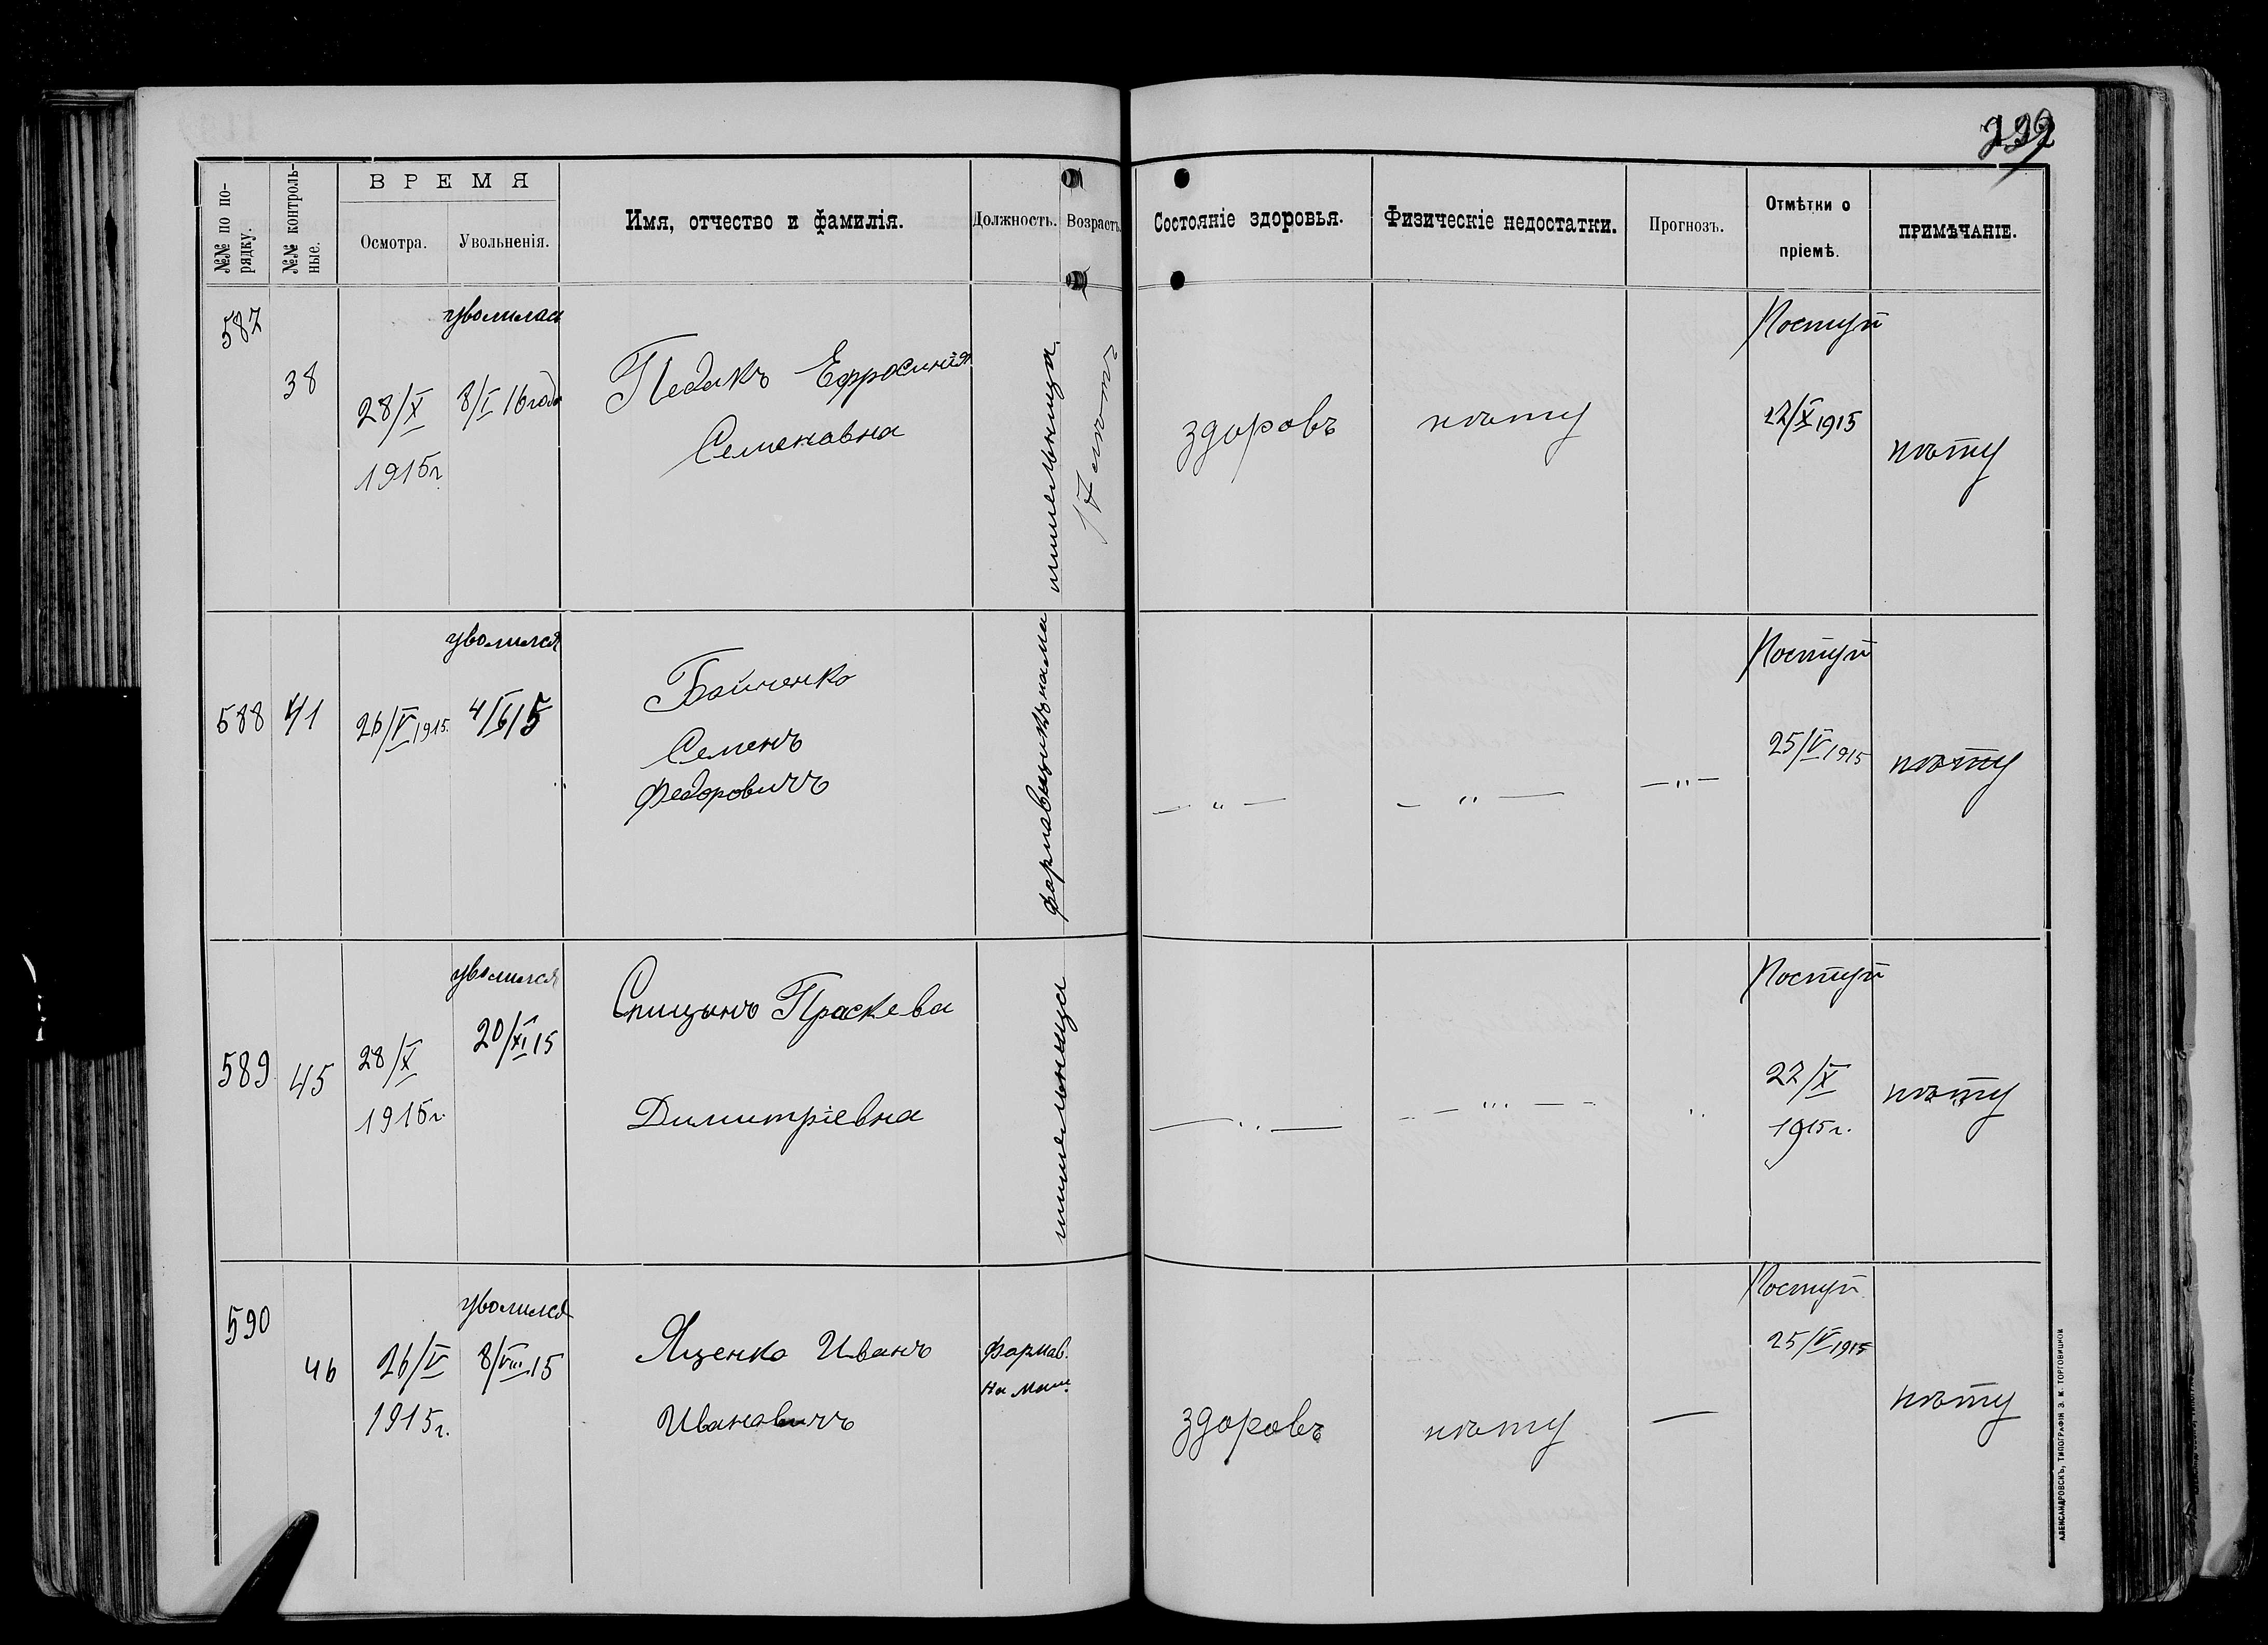 132
№№ по по-
рядку.
№№ контроль-
ные.
ВРЕМЯ
Осмотра.
Увольненія.
Имя, отчество и фамилія.
Должность.
Возрастъ.
Состояніе здоровья.
Физическіе недостатки.
Прогнозъ.
Отмѣтки о
пріемѣ.
ПРИМѢЧАНІЕ.
587
38
28/X
1915г
уволилась
8/I 16 года
Педакъ Ефросинія
Семенавна
шишельница
17 лѣтъ
здоровъ
нѣту
Поступ
22/X 1915
нѣту
588
41
26/V 1915.
уволился
4/6/15
Бойченко
Семенъ
Федоровичъ
— „ —
— „ —
— „ —
Поступ
25/V 1915
нѣту
589
45
28/X
1915г.
уволился
20/XI 15
Спицынъ Праскева
Димитріевна
шишельница
— „ —
— „ —
„
Поступ
22/X
1915г.
нѣту
590
46
26/V
1915г.
уволился
8/VIII 15
Яценко Иванъ
Ивановичъ
Формов.
на маш.
здоровъ
нѣту
—
Поступ
25/V 1915
нѣту
АЛЕКСАНДРОВСКЪ, ТИПОГРАФІЯ Э. М. ТОРГОВИЦКОЙ